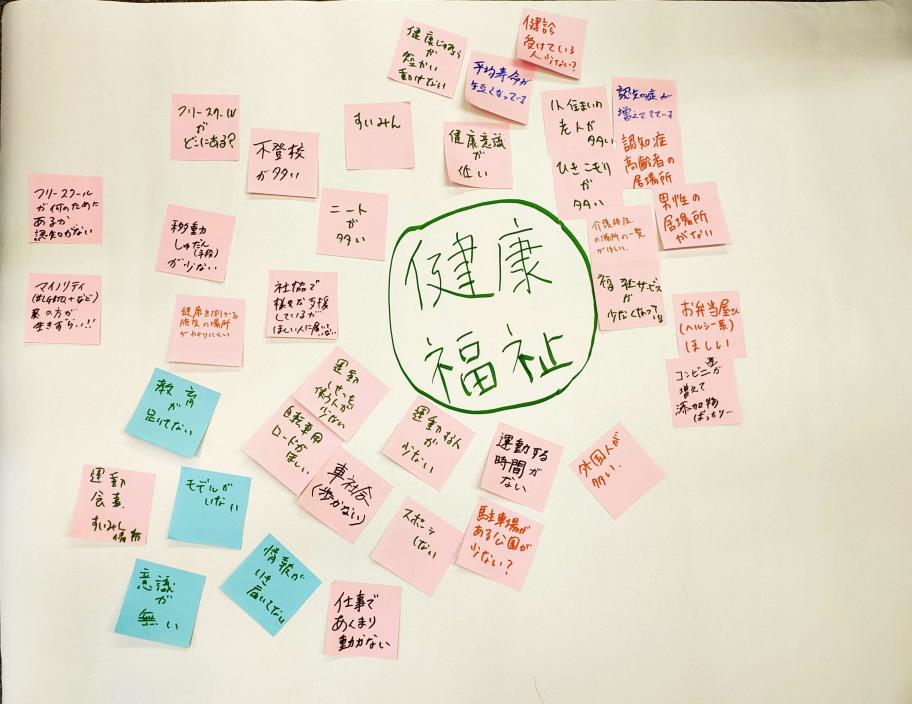 健康じゅみょう
が
短かい
動けない
平均寿命が
短くなっている
健診
受けている
人少ない?
フリースクール
が
どこにある?
不登校
が多い
すいみん
健康意識
が
低い
1人住まいの
老人が
多い
ひきこもり
が
多い
認知症が
増えてきている
認知症
高齢者の
居場所
男性の
居場所
がない
フリースクール
が何のために
あるか
認知がない
移動
しゅだん(手段)
が少ない
ニート
が
多い
介護施設
の場所の一覧
がほしい
福祉サービス
が
少なくなっている
マイノリティ
(#LGBTQ+など)
の方が
生きずらい!!
健康を測れる
施設の場所
がわかりにくい
社協で
様々な支援
しているが
ほしい人に届いてない
健康
福祉
お弁当屋さん
(ヘルシー系)
ほしい
コンビニが
増えて
添加物
ばっかり…
教育
が
足りてない
運動
しせつを
使う人が
少ない
自転車用
ロードが
ほしい
車社会
(歩かない)
運動する人
が
少ない
運動する
時間が
ない
外国人が
多い.
運動
食事
すいみん
情報
モデルが
いない
スポーツ
しない
駐車場が
ある公園が
少ない?
意識
が
無い
情報が
いき
届いてない
仕事で
あんまり
動かない